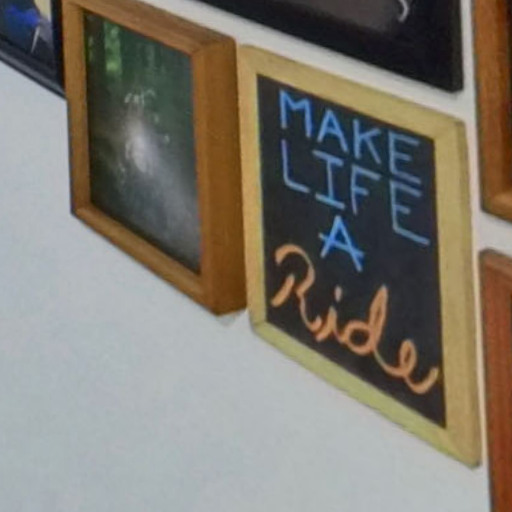 MAKE
LIFE
A
Ride